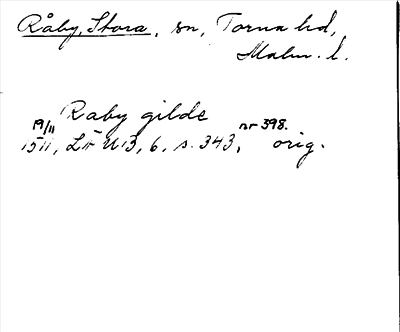 Råby, Stora, sn, Torna hd,
Malm. l.
Raby gilde
19/11 nr 398.
1511, LÆU 13, 6, s. 343, orig.